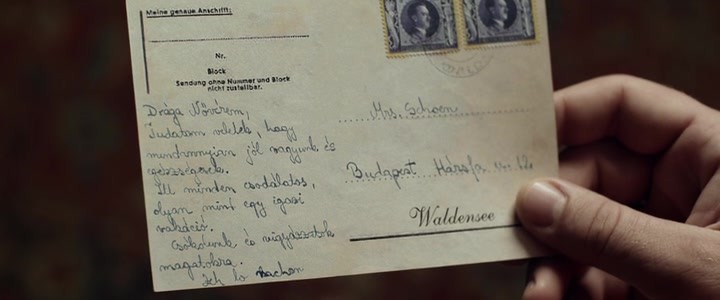 Meine genaue Anschrift:
Nr.
Block
Sendung ohne Nummer und Block
nicht zustellbar.
Drága Nővérem,
Tudatom veletek, hogy
mindannyian jól vagyunk és
egészségesek.
Itt minden csodálatos,
olyan mint egy igazi
vakáció.
Csókolunk és vigyázzatok
magatokra.
Mrs. Schoen
Budapest Hársfa 12
Waldensee